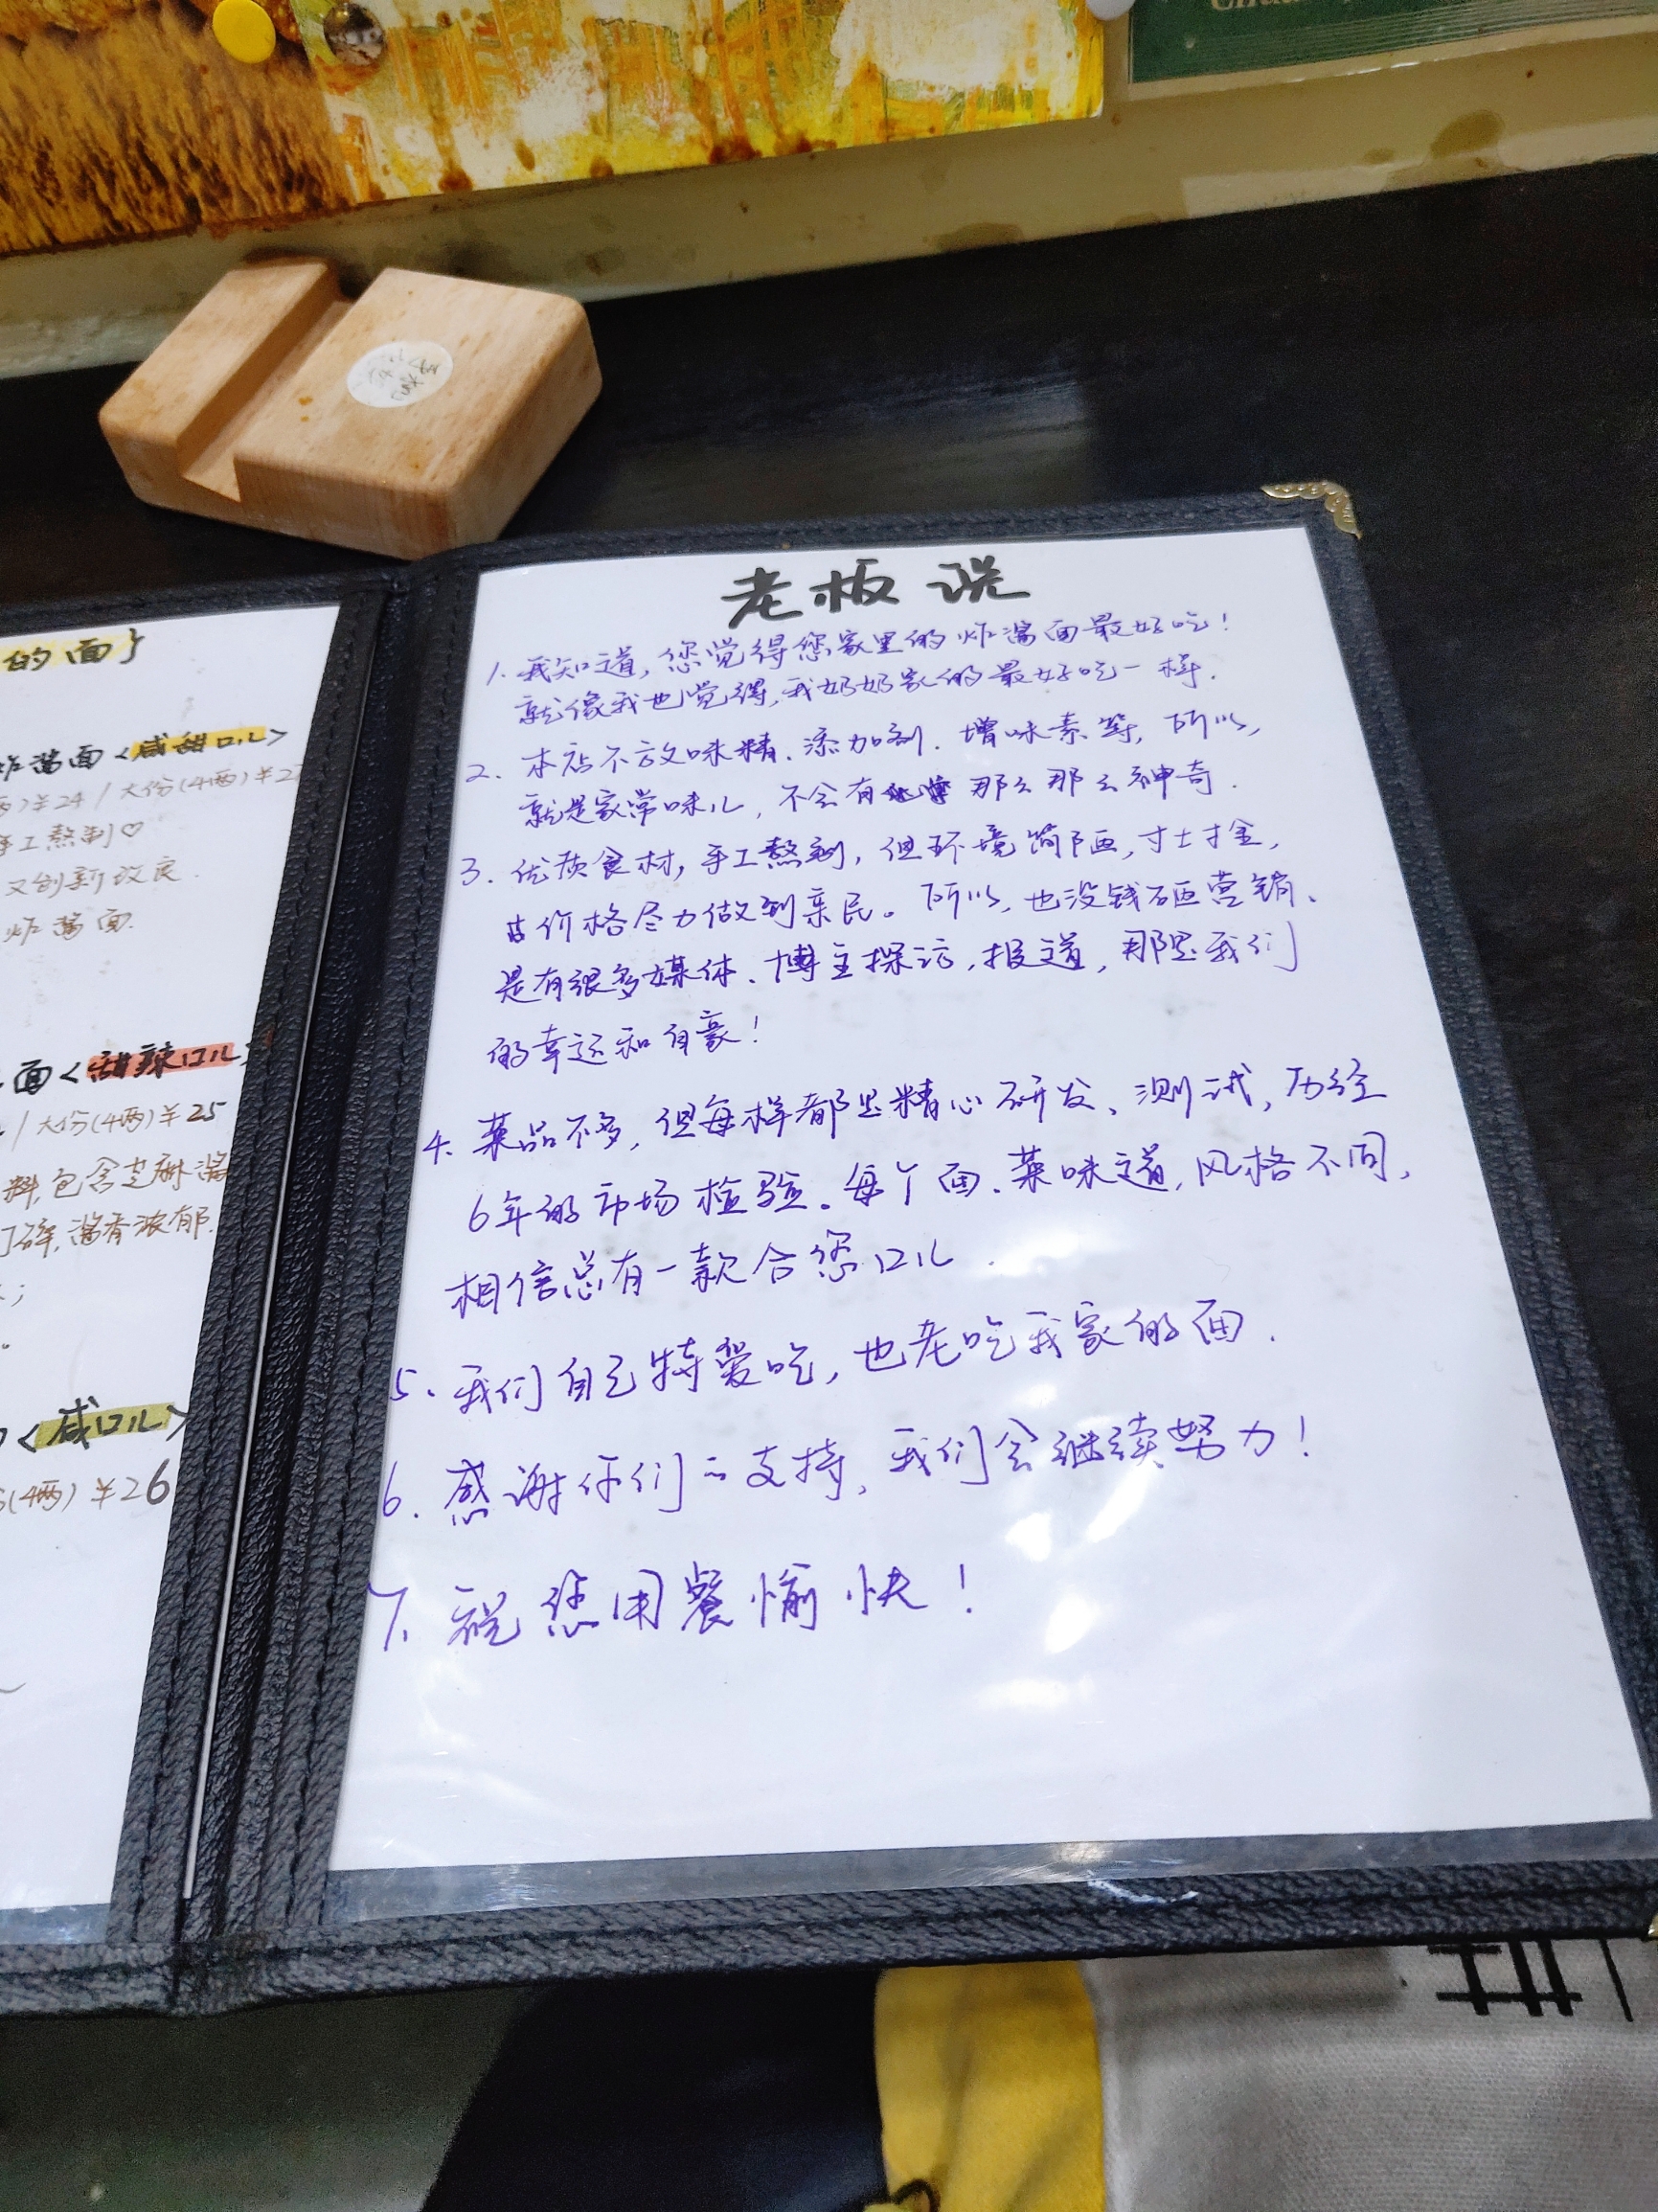 的面}
炸酱面<咸甜口儿>
)¥24 / 大份(4两)¥2
手工熬制♡
又创新改良.
炸酱面.
面<甜辣口儿>
/ 大份(4两)¥25
料,包含芝麻酱
碎,酱香浓郁.
<咸口儿>
(4两) ¥26
老板说
1. 我知道, 您觉得您家里的炸酱面最好吃!
就像我也觉得,我奶奶家的最好吃一样.
2. 本店不放味精、添加剂、增味素等, 所以,
就是家常味儿, 不会有 那么那么神奇.
3. 优质食材, 手工熬制, 但环境简陋, 寸土寸金,
价格尽力做到亲民。所以, 也没钱砸营销、
是有很多媒体、博主探访,报道, 那是我们
的幸运和自豪!
4. 菜品不多, 但每样都是精心研发、测试, 历经
6年的市场检验。每个面、菜味道,风格不同,
相信总有一款合您口儿.
5. 我们自己特爱吃, 也老吃我家的面.
6. 感谢你们の支持, 我们会继续努力!
7. 祝您用餐愉快!